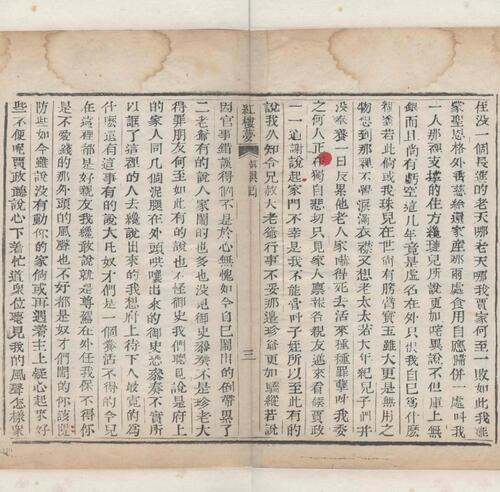 在沒一個長進的老天哪老天哪我賈家何至一敗如此我雖
蒙聖恩格外垂慈給還家產那兩處食用自應歸併一處叫我
一人那裡支撐的住方纔璉兒所說更加咤異說不但庫上無
銀而且尚有虧空這几年竟是虛名在外只恨我自己爲什麽
糊塗若此倘或我珠兒在世尚有膀臂寶玉雖大更是無用之
物想到那裡不覺淚滿衣襟又想老太太若大年紀兒子們并
没奉養一日反累他老人家嚇得死去活來種種罪孽叫我委
之何人正在獨自悲切只見家人禀報各親友進來看候賈政
一一道謝說起家門不幸是我不能管教子姪所以至此有的
說我久知令兄赦大老爺行事不妥那邊珍爺更加驕縱若說
紅樓夢
三
因官事錯誤得個不是於心無愧如今自己鬧出的倒帶累了
二老爺有的說人家鬧的也多也没見御史參奏不是珍老大
得罪朋友何至如此有的說也不怪御史我們聽見說是府上
的家人同几個泥腿在外頭哄嚷出來的御史恐參奏不實所
以誆了這裡的人去纔說出來的我想府上待下人最寬的爲
什麽還有這事有的說大凡奴才們是一個養活不得的今兒
在這裡都是好親友我纔敢說就是尊駕在外任我保不得你
是不愛錢的那外頭的風聲也不好都是奴才們鬧的你該隄
防些如今雖說没有動你的家倘或再遇着主上疑心起來好
些不便呢賈政聽說心下着忙道衆位聽見我的風聲怎樣衆